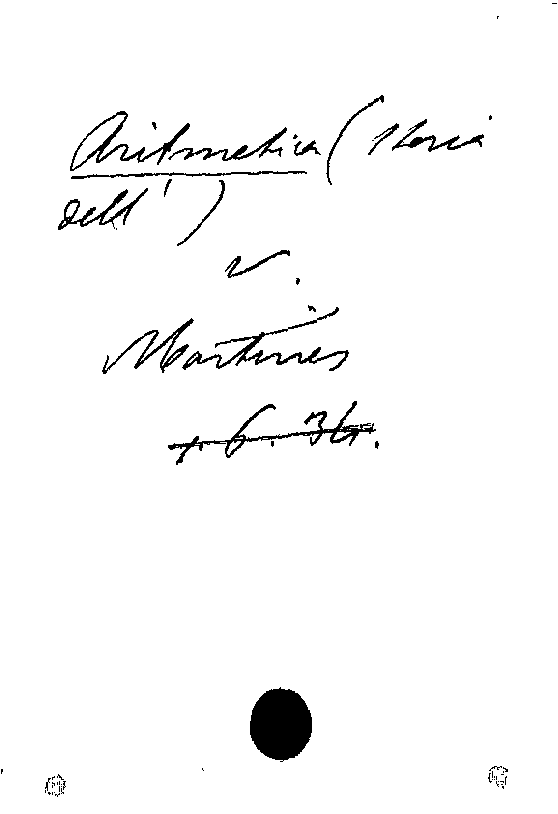 Aritmetica (Storia
dell')
v.
Martines
+. 6. 34.